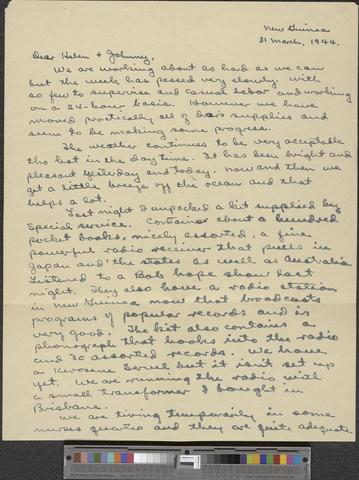 New Guinea
31 March, 1944.
Dear Helen & Johnny,
We are working about as hard as we can
but the week has passed very slowly. With
so few to supervise and casual labor and working
on a 24-hour basis. However we have
moved practically all of our supplies and
seem to be making some progress.
The weather continues to be very acceptable
tho hot in the daytime. It has been bright and
pleasant yesterday and today. Now and then we
get a little breeze off the ocean and that
helps a lot.
Last night I unpacked a kit supplied by
Special Service. Contains about a hundred
pocket books, nicely assorted, a fine
powerful radio receiver that pulls in
Japan and the states as well as Australia
Listened to a Bob Hope show last
night. They also have a radio station
in New Guinea now that broadcasts
programs of popular records and is
very good. The kit also contains a
phonograph that hooks into the radio
and 30 assorted records. We have
a Kerosene Servel but it isn't set up
yet. We are running the radio with
a small transformer I bought in
Brisbane.
We are living temporarily in some
nurses quarters and they are quite adequate